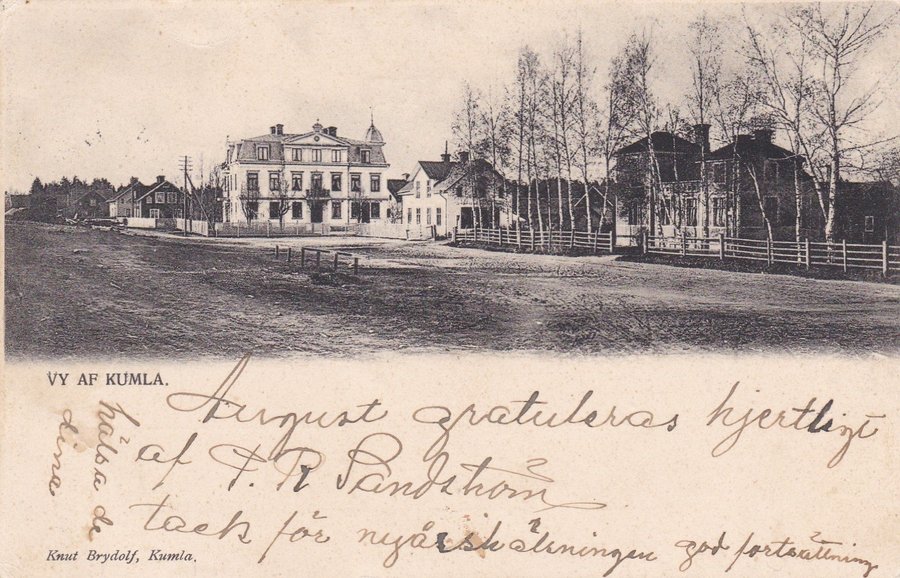 VY AF KUMLA.
August gratuleras hjertligt
af F. R Sandström
tack för nyårsskålningen god fortsättning
hälsa de
dina
Knut Brydolf, Kumla.